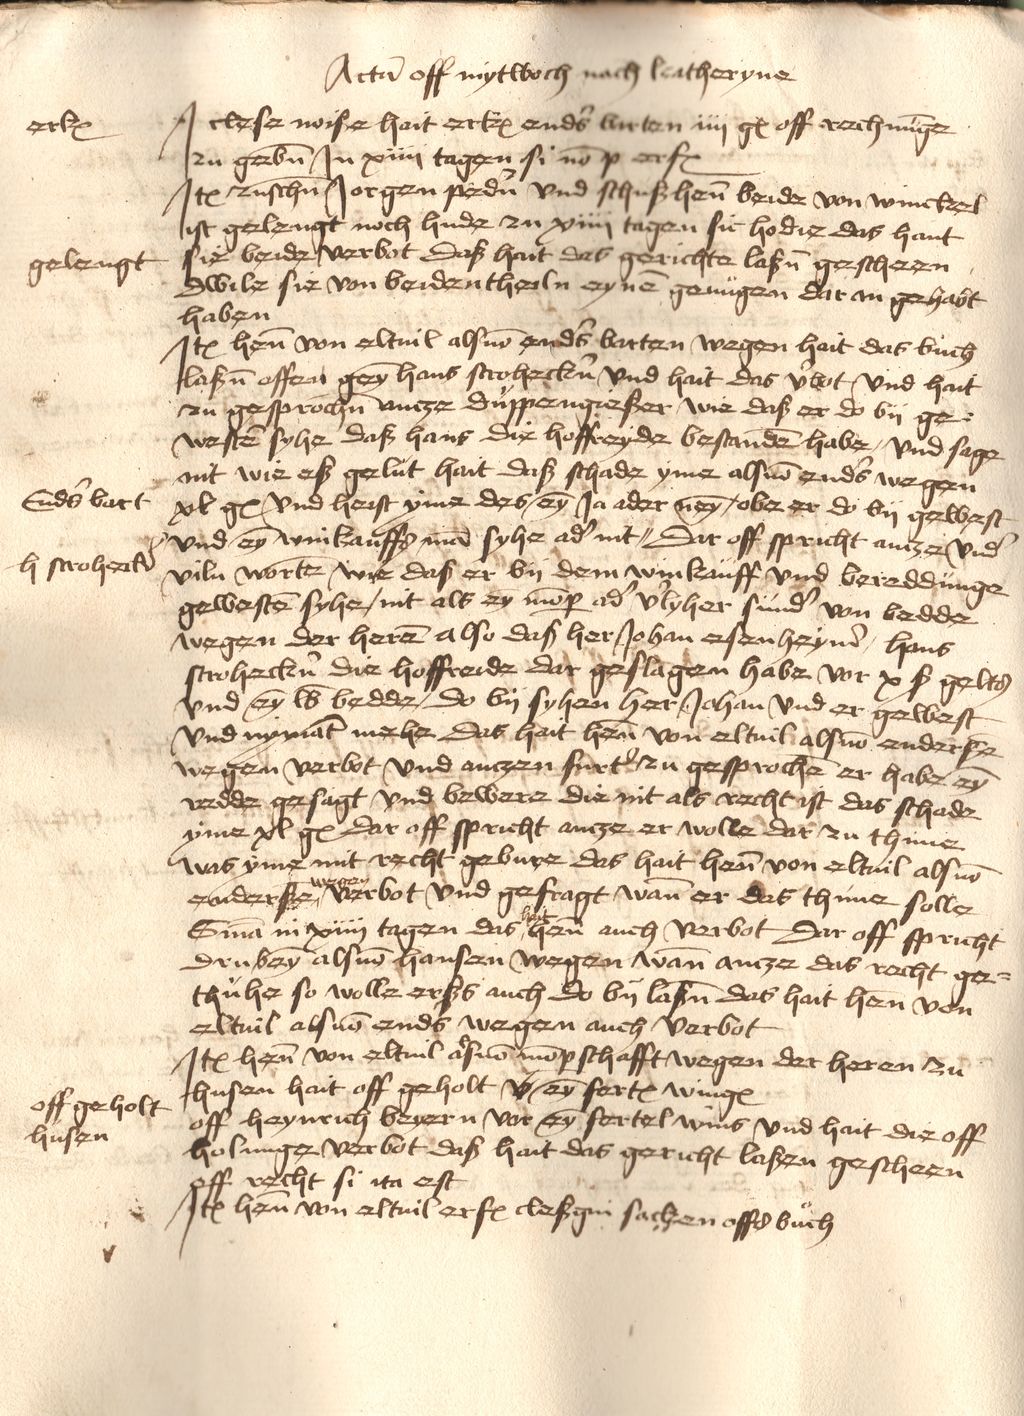 Acta off mytwoch nach katheryne
erk(ennt)
It(em) clese noiße hait erk(ennt) end(er)s barten iiii g(u)l(den) off rechnu(n)ge
zu gebn̄ In xiiii tagen si no(n) p(fand) erf(olgt)
It(em) zusch(e)n Jorgen pedn̄ vnd schußhen̄ beide von winckel
ist gelengt noch hude zu xiiii tagen sic(ut) hodie das hant
gelengt
sie beide verbot Daß hait das gerichte laßn̄ gescheen
Dwile sie von beidentheiln eyne(n) genugen dar an gehabt
haben
It(em) hen̄ von eltuil als mo(m)p(ar) end(er)s barten wegen hait das buch
laßn̄ offen gey(n) hans stroheckn̄ vnd hait das v(er)bot vnd hait
zu gesproch(e)n ancze duppengießer wie daß er do bij ge=
weste(n) syhe daß hans die hoffreyde bestande(n) habe / vnd sage
nit wie eß gelut hait daß schade yme als mo(m)p(ar) end(er)s wegen
End(er)s bart
xl g(u)l(den) vnd heist yme des ey(n) Ja ader ney(n) / obe er do bij gewest
vnd ey(n) winkauffs man syhe ad(er) nit // Dar off spricht ancze vnd(er)
h stroheck(er)
viln worte(n) wie daß er bij dem winkauff vnd bereddunge
geweste(n) syhe / nit als ey(n) mo(m)p(ar) ad(er) v(er)lyher sund(er) von bedde
wegen der here(n) Also daß her Johan esenheym(er) / hans
stroheckn̄ die hoffreide dar geslagen habe vor x ß geltes
vnd ey(n) lb bedde / do bij syhen her Johan vnd er gewest
vnd nyma(n)t mehe Das hait hen̄ von eltuil als mo(m)p(ar) enderße
wegen verbot vnd anczen furt(er) zu gesproche(n) er habe ey(n)
redde gesagt vnd bewere die nit als recht ist das schade
yme xl g(u)l(den) dar off spricht ancze er wolle dar zu thune
was yme mit recht gebure das hait hen̄ von eltuil als mo(m)p(ar)
enderße wegen verbot vnd gefragt wan̄ er das thune solle
S(e)n(tenci)a in xiiii tagen das hait hen̄ auch verbot Dar off spricht
drubey(n) als mo(m)p(ar) hansen wegen wan̄ ancze das recht ge=
thuhe so wolle erßs auch do bij laßn̄ das hait hen̄ von
eltuil als mo(m)p(ar) end(er)s wegen auch verbot
It(em) hen̄ von eltuil als mo(m)p(ar) mo(m)p(ar)schafft wegen der heren zu
husen hait off geholt v(or) ey(n) fert(el) wing(elts)
off geholt
off heynrich beyern vor ey(n) fertel wins vnd hait die off
husen
holunge verbot daß hait das gericht laßen gescheen
off recht si ita est
It(em) hen̄ von eltuil erf(olgt) cleßgin sachen offs buch